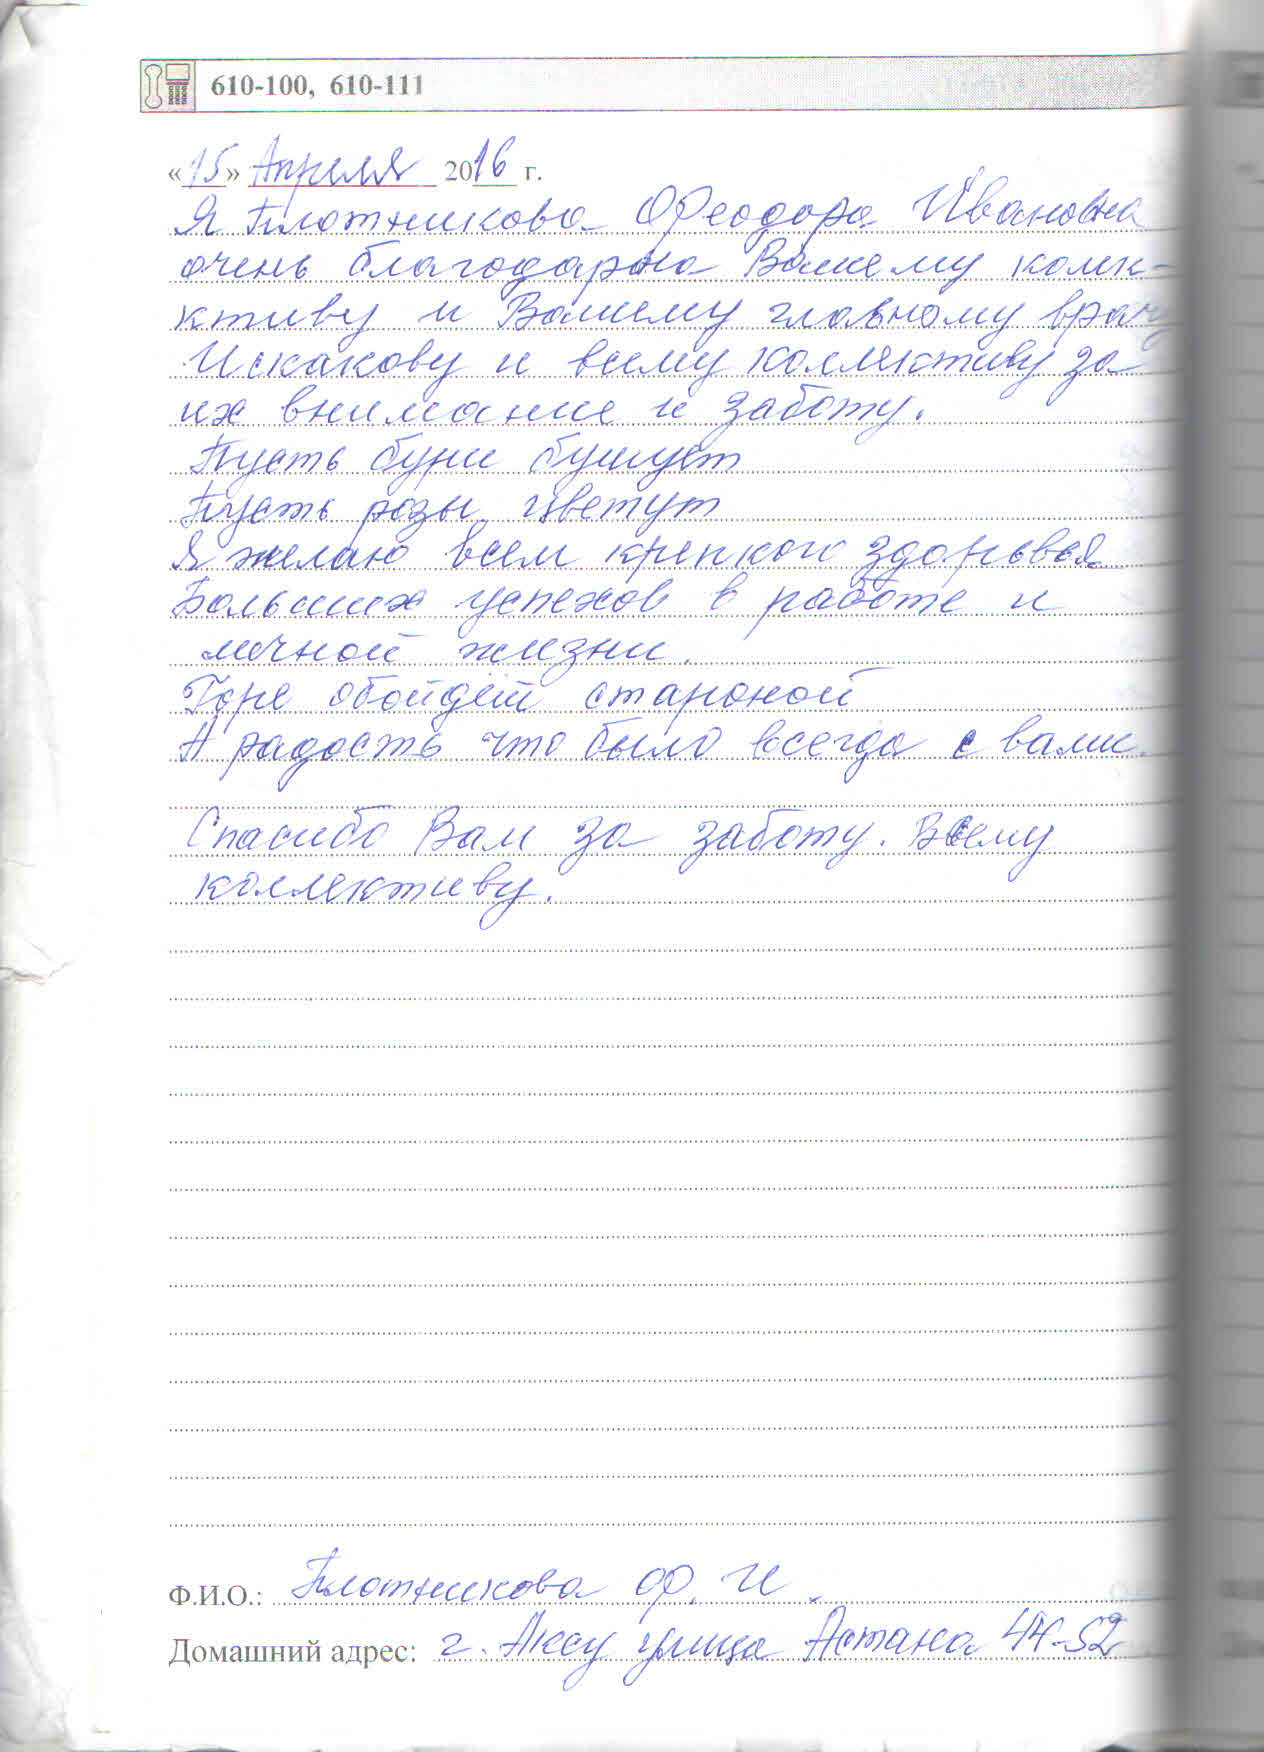 610-100, 610-111
«15» Апреля 2016 г.
Я Плотникова Феодора Ивановна
очень благодарна Вашему колек-
ктиву и Вашему главному врачу
Искакову и всему коллективу за
их внимание и заботу.
Пусть бури бушует
Пусть розы цветут
Я желаю всем крепкого здоровья
Больших успехов в работе и
личной жизни.
Горе обойдёт староной
А радость что было всегда с вами.
Спасибо Вам за заботу. Всему
коллективу.
Ф.И.О.: Плотникова Ф. И.
Домашний адрес: г. Аксу улица Астана 44-52